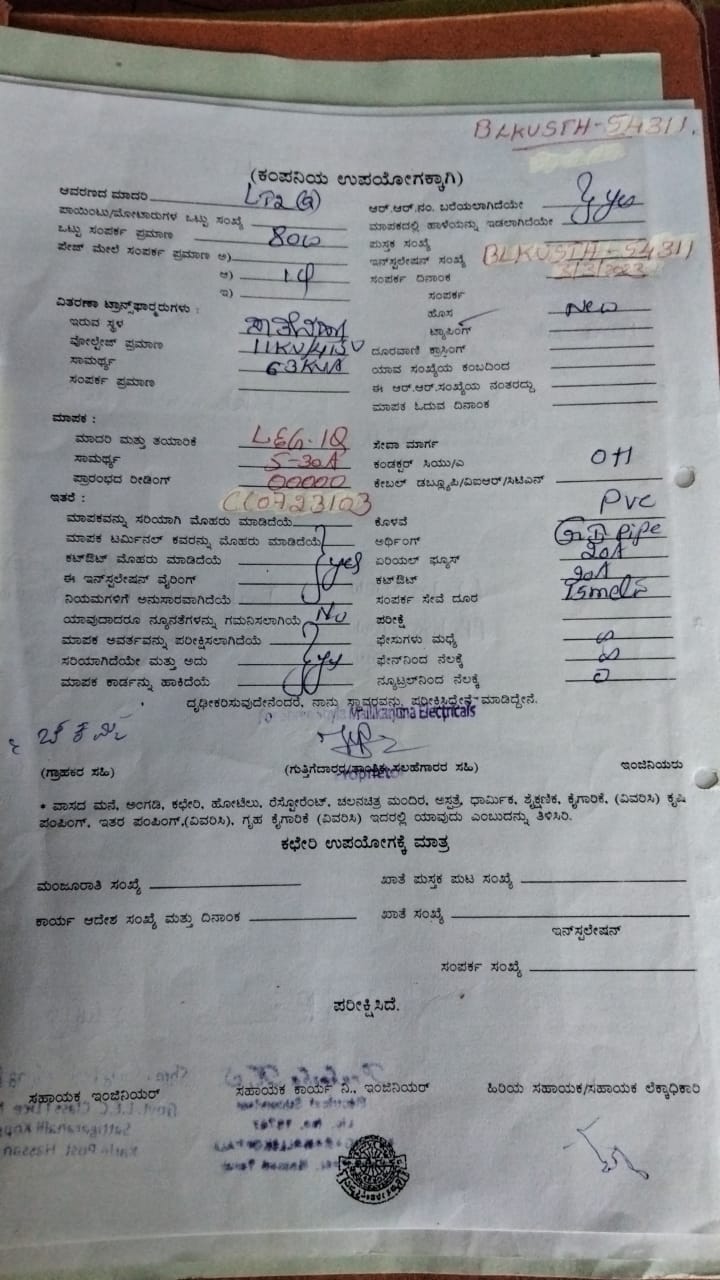 BLKUSTH-54311.
(ಕಂಪನಿಯ ಉಪಯೋಗಕ್ಕಾಗಿ)
ಆವರಣದ ಮಾದರಿ LT2 (a) ಆರ್.ಆರ್.ನಂ. ಬರೆಯಲಾಗಿದೆಯೇ
ಪಾಯಿಂಟು/ಮೋಟಾರುಗಳ ಒಟ್ಟು ಸಂಖ್ಯೆ ಮಾಪಕದಲ್ಲಿ ಹಾಳೆಯನ್ನು ಇಡಲಾಗಿದೆಯೇ } yes
ಒಟ್ಟು ಸಂಪರ್ಕ ಪ್ರಮಾಣ 80w ಪುಸ್ತಕ ಸಂಖ್ಯೆ
ಪೇಜ್ ಮೇಲೆ ಸಂಪರ್ಕ ಪ್ರಮಾಣ ಅ) ಇನ್‌ಸ್ಟಲೇಷನ್ ಸಂಖ್ಯೆ BLKUSTH-54311
ಆ) 1φ ಸಂಪರ್ಕ ದಿನಾಂಕ 3/3/2023
ಇ) ಸಂಪರ್ಕ
ವಿತರಣಾ ಟ್ರಾನ್ಸ್‌ಫಾರ್‍ಮರುಗಳು : ಹೊಸ New
ಇರುವ ಸ್ಥಳ ಟ್ಯಾಪಿಂಗ್
ವೋಲ್ಟೇಜ್ ಪ್ರಮಾಣ 11KV/415V ದೂರವಾಣಿ ಕ್ರಾಸಿಂಗ್
ಸಾಮರ್ಥ್ಯ 63KVA ಯಾವ ಸಂಖ್ಯೆಯ ಕಂಬದಿಂದ
ಸಂಪರ್ಕ ಪ್ರಮಾಣ ಈ ಆರ್.ಆರ್.ಸಂಖ್ಯೆಯ ನಂತರದ್ದು
ಮಾಪಕ ಓದುವ ದಿನಾಂಕ
ಮಾಪಕ :
ಮಾದರಿ ಮತ್ತು ತಯಾರಿಕೆ L&G-1Q ಸೇವಾ ಮಾರ್ಗ
ಸಾಮರ್ಥ್ಯ 5-30A ಕಂಡಕ್ಟರ್ ಸಿಯು/ಎ OH
ಪ್ರಾರಂಭದ ರೀಡಿಂಗ್ 00000 ಕೇಬಲ್ ಡಬ್ಲ್ಯೂಪಿ/ವಿಐಆರ್/ಸಿಟಿಎನ್
ಇತರೆ : CL0723103 PVC
ಮಾಪಕವನ್ನು ಸರಿಯಾಗಿ ಮೊಹರು ಮಾಡಿದೆಯೆ ಕೊಳವೆ
ಮಾಪಕ ಟರ್ಮಿನಲ್ ಕವರನ್ನು ಮೊಹರು ಮಾಡಿದೆಯೆ ಅರ್ಥಿಂಗ್ GI pipe
ಕಟ್‌ಔಟ್ ಮೊಹರು ಮಾಡಿದೆಯೆ } yes ಏರಿಯಲ್ ಫ್ಯೂಸ್ 20A
ಈ ಇನ್‌ಸ್ಟಲೇಷನ್ ವೈರಿಂಗ್ ಕಟ್‌ಔಟ್ 20A
ನಿಯಮಗಳಿಗೆ ಅನುಸಾರವಾಗಿದೆಯೆ ಸಂಪರ್ಕ ಸೇವೆ ದೂರ
ಯಾವುದಾದರೂ ನ್ಯೂನತೆಗಳನ್ನು ಗಮನಿಸಲಾಗಿಯೆ No ಪರೀಕ್ಷೆ
ಮಾಪಕ ಅವರ್ತವನ್ನು ಪರೀಕ್ಷಿಸಲಾಗಿದೆಯೆ ಫೇಸುಗಳು ಮಧ್ಯೆ ∞
ಸರಿಯಾಗಿದೆಯೇ ಮತ್ತು ಅದು } yes ಫೇಸ್‌ನಿಂದ ನೆಲಕ್ಕೆ ∞
ಮಾಪಕ ಕಾರ್ಡನ್ನು ಹಾಕಿದೆಯೆ ನ್ಯೂಟ್ರಲ್‌ನಿಂದ ನೆಲಕ್ಕೆ 0
ದೃಢೀಕರಿಸುವುದೇನೆಂದರೆ, ನಾನು ಸ್ಥಾವರವನ್ನು ಪರೀಕ್ಷಿಸಿದ್ದೇನೆ-ಮಾಡಿದ್ದೇನೆ.
Mallikarjuna Electricals
(ಗ್ರಾಹಕರ ಸಹಿ) (ಗುತ್ತಿಗೆದಾರರ/ತಾಂತ್ರಿಕ ಸಲಹೆಗಾರರ ಸಹಿ) ಇಂಜಿನಿಯರು
Proprietor
* ವಾಸದ ಮನೆ, ಅಂಗಡಿ, ಕಛೇರಿ, ಹೋಟಿಲು, ರೆಸ್ಟೋರೆಂಟ್, ಚಲನಚಿತ್ರ ಮಂದಿರ, ಆಸ್ಪತ್ರೆ, ಧಾರ್ಮಿಕ, ಶೈಕ್ಷಣಿಕ, ಕೈಗಾರಿಕೆ, (ವಿವರಿಸಿ) ಕೃಷಿ
ಪಂಪಿಂಗ್, ಇತರ ಪಂಪಿಂಗ್,(ವಿವರಿಸಿ), ಗೃಹ ಕೈಗಾರಿಕೆ (ವಿವರಿಸಿ) ಇದರಲ್ಲಿ ಯಾವುದು ಎಂಬುದನ್ನು ತಿಳಿಸಿರಿ.
ಕಛೇರಿ ಉಪಯೋಗಕ್ಕೆ ಮಾತ್ರ
ಮಂಜೂರಾತಿ ಸಂಖ್ಯೆ ಖಾತೆ ಪುಸ್ತಕ ಪುಟ ಸಂಖ್ಯೆ
ಕಾರ್ಯ ಆದೇಶ ಸಂಖ್ಯೆ ಮತ್ತು ದಿನಾಂಕ ಖಾತೆ ಸಂಖ್ಯೆ
ಇನ್‌ಸ್ಟಲೇಷನ್
ಸಂಪರ್ಕ ಸಂಖ್ಯೆ
ಪರೀಕ್ಷಿಸಿದೆ.
ಸಹಾಯಕ ಇಂಜಿನಿಯರ್ ಸಹಾಯಕ ಕಾರ್ಯ ನಿ., ಇಂಜಿನಿಯರ್ ಹಿರಿಯ ಸಹಾಯಕ/ಸಹಾಯಕ ಲೆಕ್ಕಾಧಿಕಾರಿ